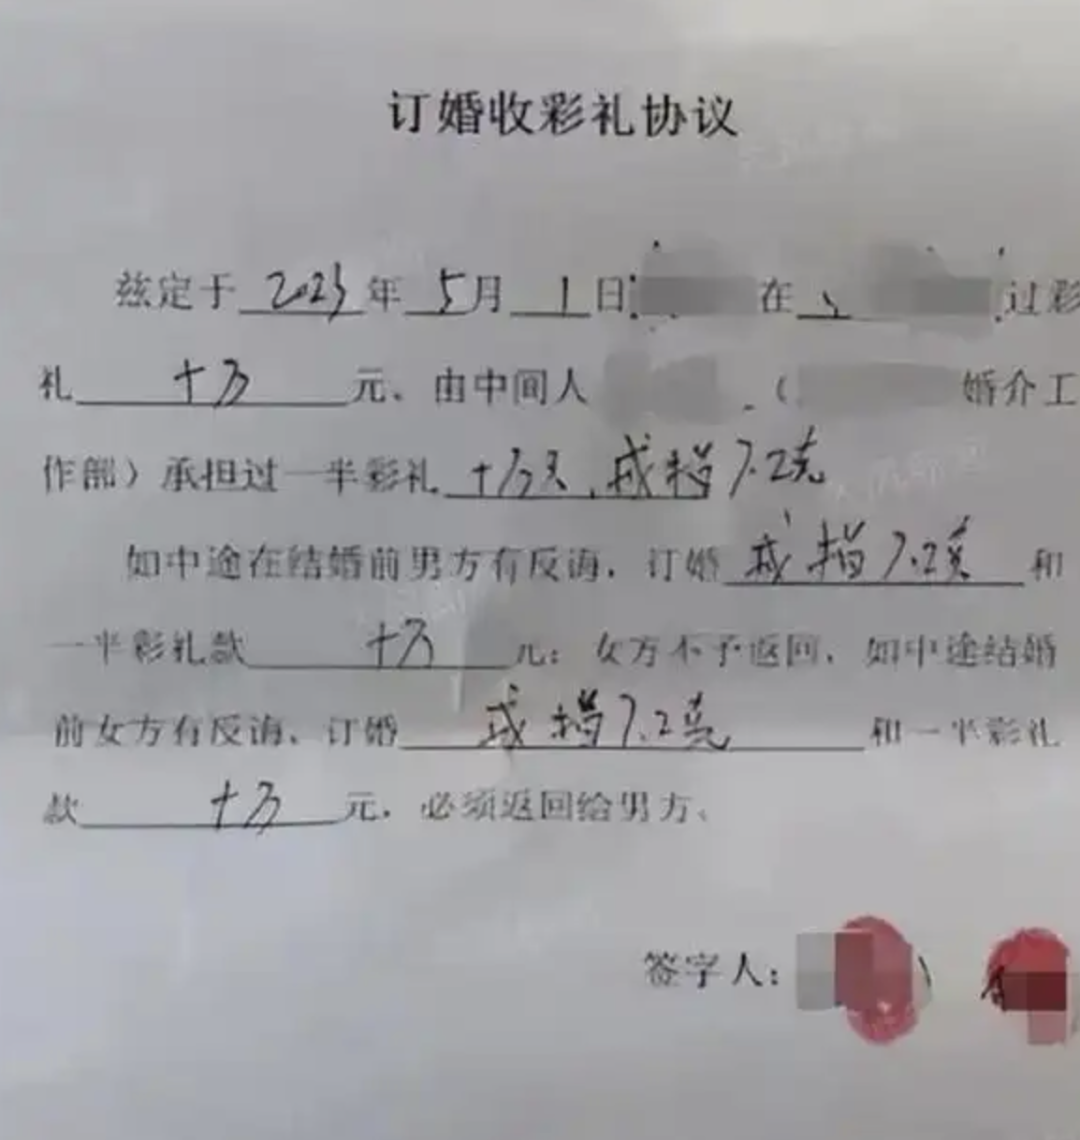 订婚收彩礼协议
兹定于 2023 年 5 月 1 日 在 过彩
礼 十万 元、由中间人 （ 婚介工
作部）承担过一半彩礼 十万元、戒指7.2克
如中途在结婚前男方有反诲，订婚 戒指7.2克 和
一半彩礼款 十万 元；女方不予返回，如中途结婚
前女方有反诲、订婚 戒指7.2克 和一半彩礼
款 十万 元，必须返回给男方、
签字人：